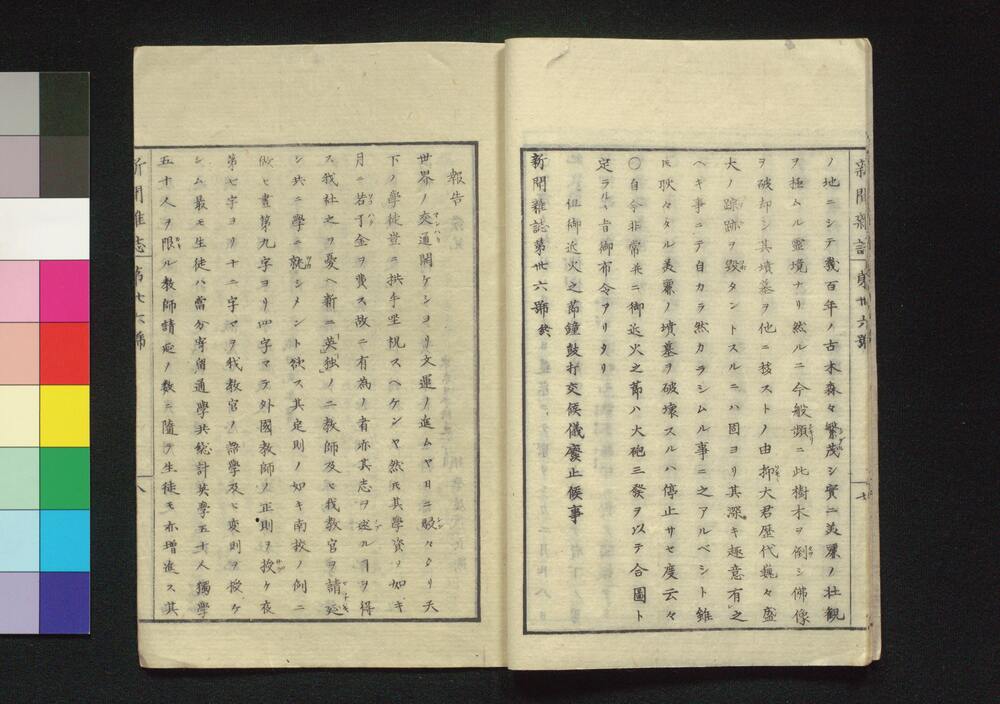 新聞雜誌 第廿六號 七
ノ地ニシテ幾百年ノ古木森々繁茂シ實ニ美羅ノ壮観
ヲ極ムル霊境ナリ然ルニ今般頻ニ此樹木ヲ倒シ佛像
ヲ破却シ其墳墓ヲ他ニ移ストノ由抑大君歴代巍々盛
大ノ蹤跡ヲ毀タントスルニハ固ヨリ其深キ趣意有之
ヘキ事ニテ自カラ然カラシムル事ニ之アルベシト雖
𪜈耿々タル美羅ノ墳墓ヲ破壊スルハ停止サセ度云々
〇自今非常並ニ御近火之節ハ大砲三發ヲ以テ合圖ト
定ラル旨御布令アリタリ
但御近火之節鐘鼓打交候儀廢止候事
新聞雜誌第廿六號終
報告
世界ノ交通開ケシヨリ文運ノ進ムヤ日ニ駸々タリ天
下ノ學徒豈ニ拱手坐視スヘケンヤ然𪜈其學資ノ如キ
月ニ若干金ヲ費ス故ニ有為ノ者亦其志ヲ遂ル日ヲ得
ス我社之ヲ憂ヘ新ニ英独ノ二教師及ヒ我教官ヲ請延
シ共ニ學ニ就シメント欲ス其定則ノ如キ南校ノ例ニ
倣ヒ晝第九字ヨリ四字マテ外國教師ノ正則ヲ授ケ夜
第七字ヨリ十二字マテ我教官ノ語學及ヒ変則ヲ授ケ
シム最モ生徒ハ當分寄留通學共総計英學五十人獨學
五十人ヲ限ル教師請延ノ数ニ隨テ生徒モ亦增進ス其
新聞雜志 第廿六號 八